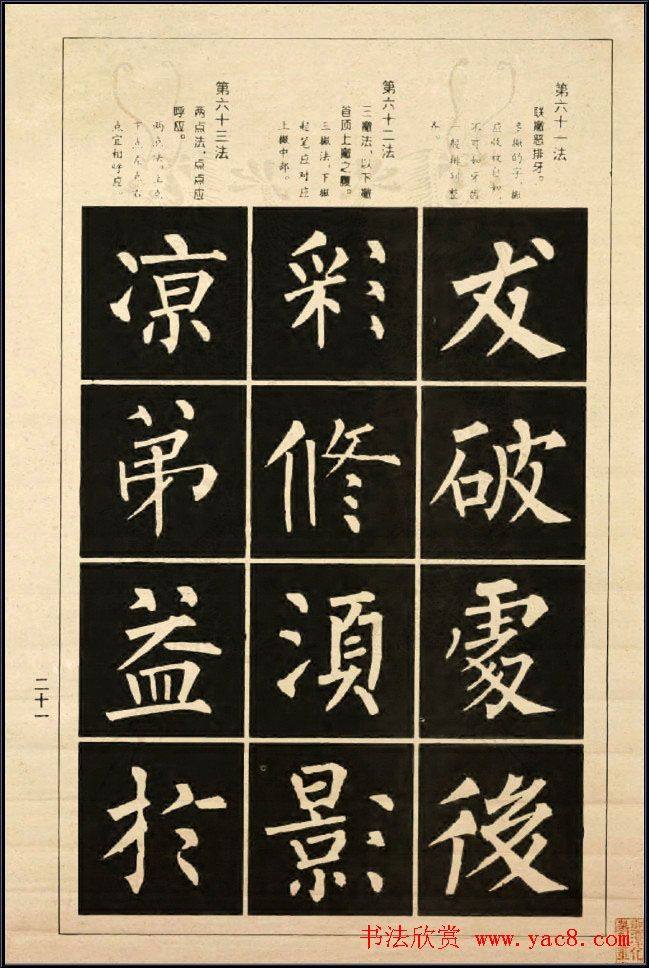 第六十一法
联撇忌排牙。
多撇的字，撇
应收放自如，
不可如牙齿
一般排列整
齐。
友
破
處
後
第六十二法
三撇法，以下撇
首顶上撇之腹。
三撇法，下撇
起笔应对应
上撇中部。
彩
修
須
影
第六十三法
两点法，点点应
呼应。
两点法，上点
下点左点右
点宜相呼应。
凉
弟
益
於
二十一
书法欣赏 www.yac8.com